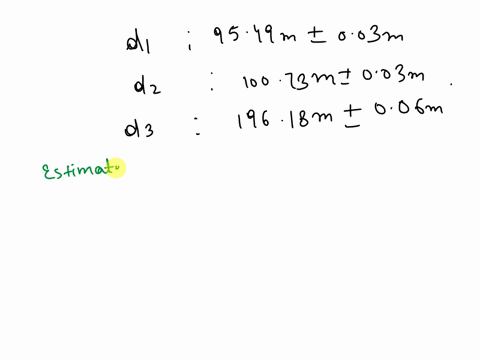 d1 : 95.49m ± 0.03m
d2 : 100.73m ± 0.03m .
d3 : 196.18m ± 0.06m
Estimat